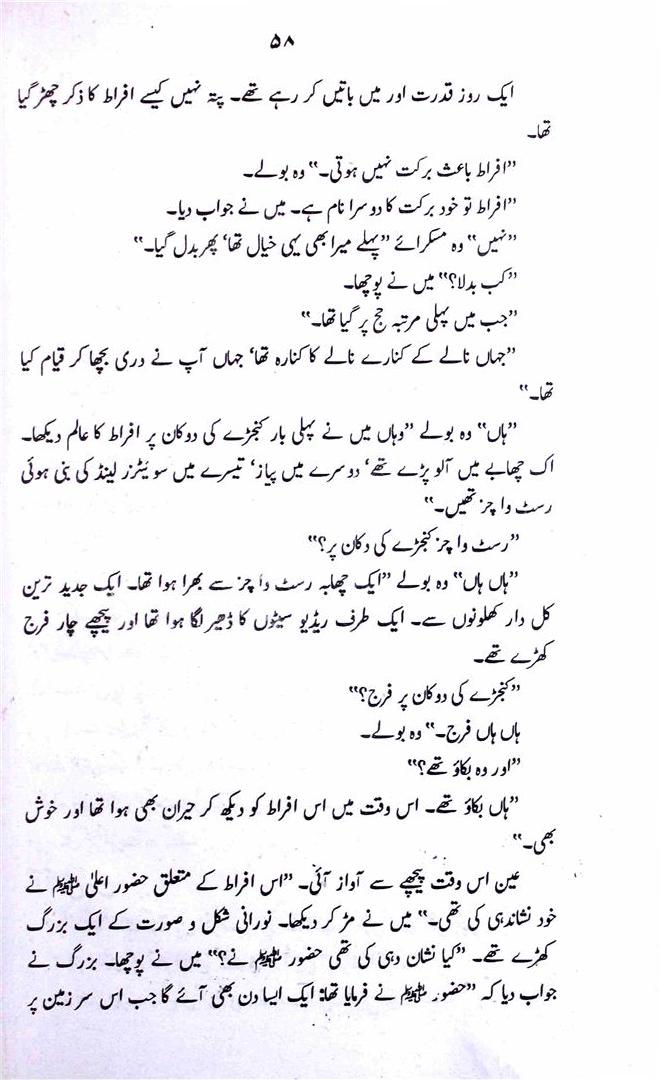 ۵۸
ایک روز قدرت اور میں باتیں کر رہے تھے۔ پتہ نہیں کیسے افراط کا ذکر چھڑ گیا
تھا۔
"افراط باعث برکت نہیں ہوتی۔" وہ بولے۔
"افراط تو خود برکت کا دوسرا نام ہے۔ میں نے جواب دیا۔
"نہیں" وہ مسکرائے "پہلے میرا بھی یہی خیال تھا' پھر بدل گیا۔"
"کب بدلا؟" میں نے پوچھا۔
"جب میں پہلی مرتبہ حج پر گیا تھا۔"
"جہاں نالے کے کنارے نالے کا کنارہ تھا' جہاں آپ نے دری بچھا کر قیام کیا
تھا۔"
"ہاں" وہ بولے "وہاں میں نے پہلی بار کنجڑے کی دوکان پر افراط کا عالم دیکھا۔
اک چھابے میں آلو پڑے تھے' دوسرے میں پیاز' تیسرے میں سوئیٹزر لینڈ کی بنی ہوئی
رسٹ واچز تھیں۔"
"رسٹ واچز کنجڑے کی دکان پر؟"
"ہاں ہاں" وہ بولے "ایک چھابہ رسٹ واچز سے بھرا ہوا تھا۔ ایک جدید ترین
کل دار کھلونوں سے۔ ایک طرف ریڈیو سیٹوں کا ڈھیر لگا ہوا تھا اور پیچھے چار فرج
کھڑے تھے۔
"کنجڑے کی دوکان پر فرج؟"
ہاں ہاں فرج۔" وہ بولے۔
"اور وہ بکاؤ تھے؟"
"ہاں بکاؤ تھے۔ اس وقت میں اس افراط کو دیکھ کر حیران بھی ہوا تھا اور خوش
بھی۔"
عین اس وقت پیچھے سے آواز آئی۔ "اس افراط کے متعلق حضور اعلیٰ ﷺ نے
خود نشاندہی کی تھی۔" میں نے مڑ کر دیکھا۔ نورانی شکل و صورت کے ایک بزرگ
کھڑے تھے۔ "کیا نشان دہی کی تھی حضور ﷺ نے؟" میں نے پوچھا۔ بزرگ نے
جواب دیا کہ "حضور ﷺ نے فرمایا تھا: ایک ایسا دن بھی آئے گا جب اس سرزمین پر